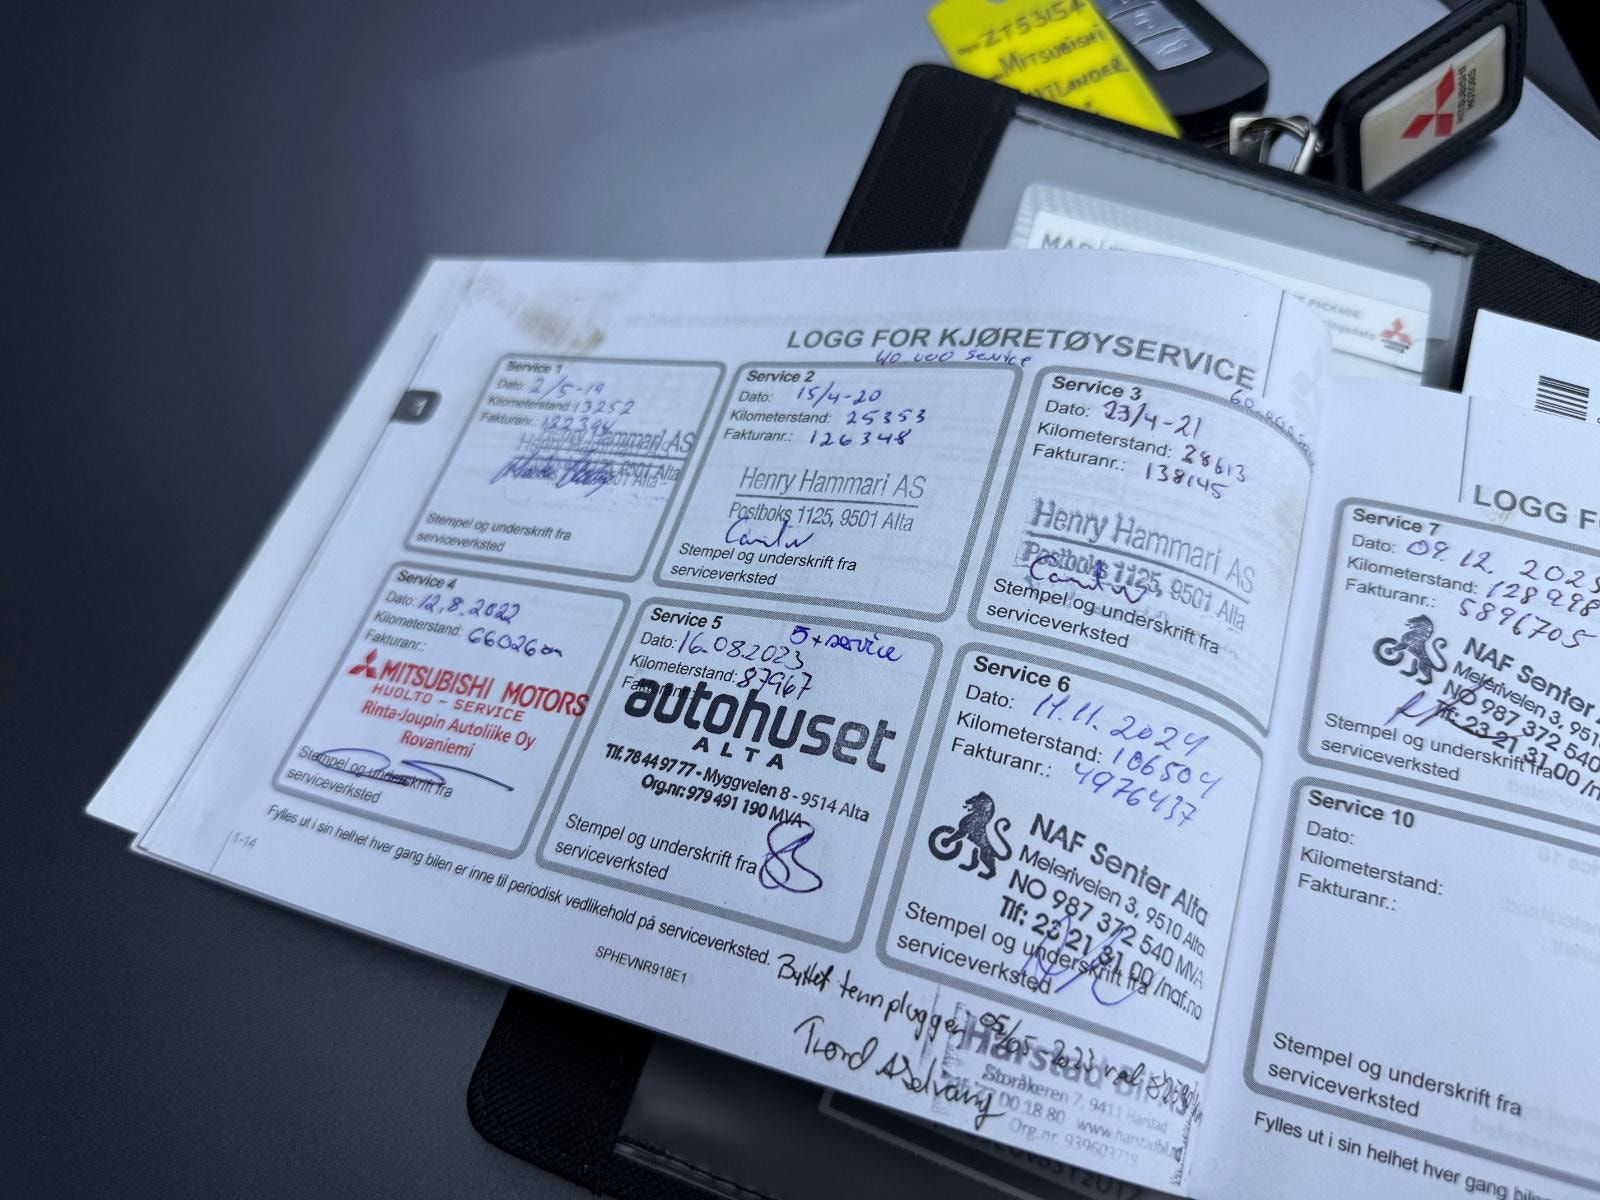 ZT53154
MITSUBISHI
MITSUBISHI
MOTORS
PACKAGE
LOGG FOR KJØRETØYSERVICE
Service 1
Dato: 2/5-19
Kilometerstand: 13252
Fakturanr.: 122394
Henry Hammari AS
9501 Alta
Stempel og underskrift fra
serviceverksted
40 000 Service
Service 2
Dato: 15/4-20
Kilometerstand: 25353
Fakturanr.: 126348
Henry Hammari AS
Postboks 1125, 9501 Alta
Stempel og underskrift fra
serviceverksted
Service 3
Dato: 23/4-21
Kilometerstand: 28613
Fakturanr.: 138145
Henry Hammari AS
Postboks 1125, 9501 Alta
Stempel og underskrift fra
serviceverksted
1
Service 4
Dato: 12.8.2022
Kilometerstand: 66026
Fakturanr.:
MITSUBISHI MOTORS
HUOLTO - SERVICE
Rinta-Joupin Autoliike Oy
Rovaniemi
Stempel og underskrift fra
serviceverksted
Service 5
5+service
Dato: 16.08.2023
Kilometerstand: 87967
autohuset
ALTA
Tlf. 78 44 97 77 - Myggveien 8 - 9514 Alta
Org.nr: 979 491 190 MVA
Stempel og underskrift fra
serviceverksted
Service 6
Dato: 11.11.2024
Kilometerstand: 106504
Fakturanr.: 4976437
NAF Senter Alta
Meieriveien 3, 9510 Alta
NO 987 372 540 MVA
Tlf: 23 21 31 00 /naf.no
Stempel og underskrift fra
serviceverksted
1-14
Fylles ut i sin helhet hver gang bilen er inne til periodisk vedlikehold på serviceverksted.
SPHEVNR918E1
Byttet tennplugger 05/05 2023
Harstad Bil AS
Storåkeren 7, 9411 Harstad
00 18 80 www.harstadbil.no
Org.nr. 939603719
LOGG F
Service 7
Dato: 09.12.2025
Kilometerstand: 128998
Fakturanr.: 5896705
NAF Senter
Meieriveien 3, 9510
NO 987 372 540
Tlf: 23 21 31 00
Stempel og underskrift fra
serviceverksted
Service 10
Dato:
Kilometerstand:
Fakturanr.:
Stempel og underskrift fra
serviceverksted
Fylles ut i sin helhet hver gang bilen er inne